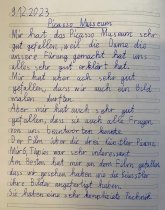 9.12.2023
Picasso Museum
Mir hat das Picasso Museum sehr
gut gefallen, weil die Dame die
unsere Fürung gemacht hat uns
alles sehr gut erklärt hat.
Mir hat aber auch sehr gut
gefallen, dass wir auch ein Bild
malen durften.
Aber mir hat auch sehr gut
gefallen, dass sie auch alle Fragen
von uns beantworten konnte.
Der Film über die drei Künstler Picasso,
Miró, Tàpies war sehr interessant.
Am besten hat mir an dem Film gefallen,
dass wir gesehen haben wie die Künstler
ihre Bilder angefertigt haben.
Sie haben eine sehr komplizierte Technik